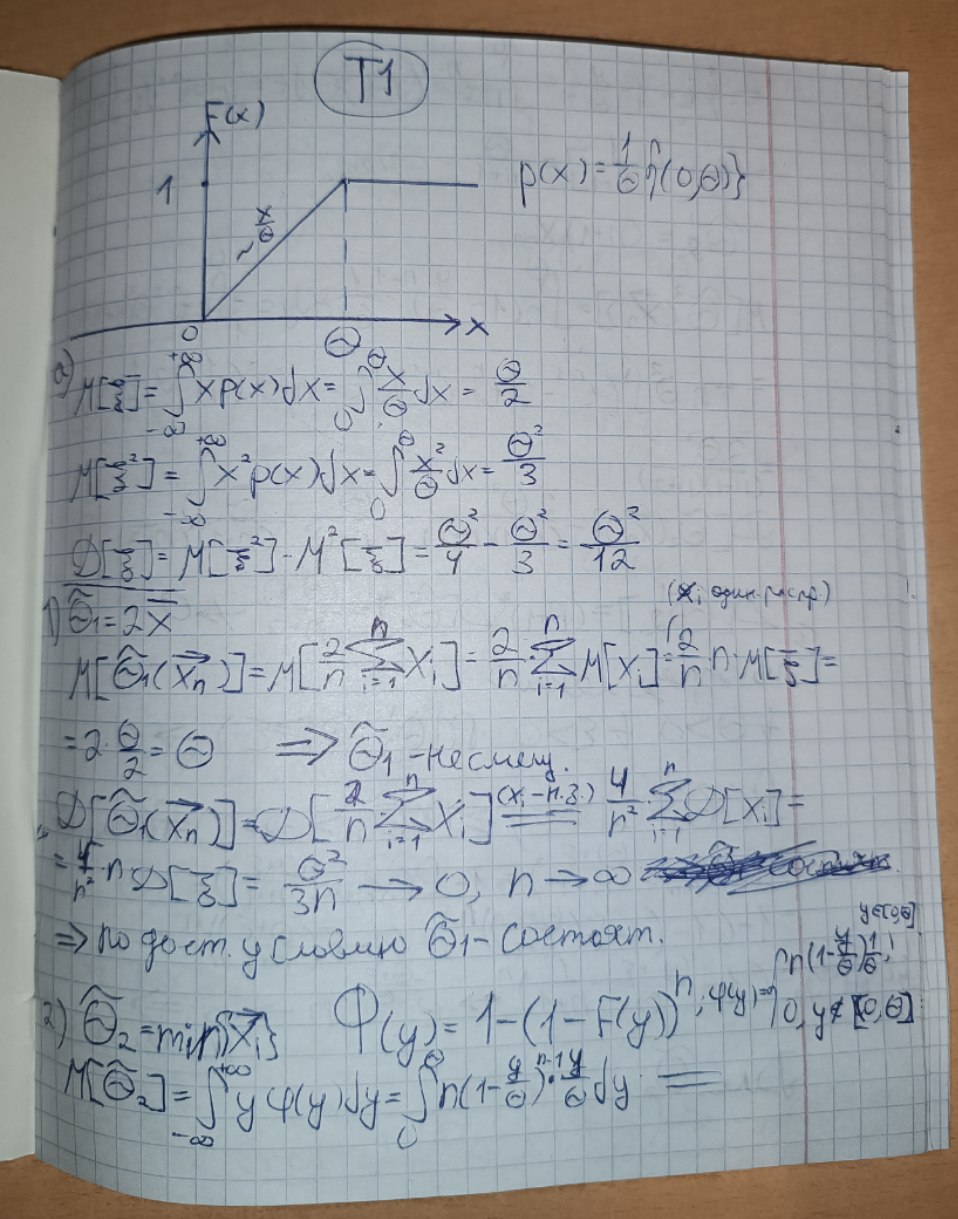 T1
F(x)
1
~ x/Θ
p(x) = 1/Θ {(0,Θ)}
0 Θ x
a)
M[ξ] = ∫_{-∞}^{+∞} x p(x) dx = ∫_0^Θ x/Θ dx = Θ/2
M[ξ²] = ∫_{-∞}^{+∞} x² p(x) dx = ∫_0^Θ x²/Θ dx = Θ²/3
D[ξ] = M[ξ²] - M²[ξ] = Θ²/4 - Θ²/3 = Θ²/12
1) Θ̃₁ = 2x̄
(xᵢ один. распр.)
M[Θ̃₁(x⃗ₙ)] = M[2/n ∑_{i=1}^n xᵢ] = 2/n · ∑_{i=1}^n M[xᵢ] = 2/n · n · M[ξ] =
= 2 · Θ/2 = Θ ⟹ Θ̃₁ - несмещ.
D[Θ̃₁(x⃗ₙ)] = D[2/n ∑_{i=1}^n xᵢ] = (xᵢ - н.з.) 4/n² · ∑_{i=1}^n D[xᵢ] =
= 4/n² · n D[ξ] = Θ²/3n → 0, n → ∞
⟹ по дост. условию Θ̃₁ - состоят.
2) Θ̃₂ = min{xᵢ} Φ(y) = 1 - (1 - F(y))ⁿ; φ(y) = { n(1 - y/Θ) 1/Θ; y∈[0,Θ]
0, y∉[0,Θ]
M[Θ̃₂] = ∫_{-∞}^{+∞} y φ(y) dy = ∫_0^Θ n(1 - y/Θ)^{n-1} · y/Θ dy =